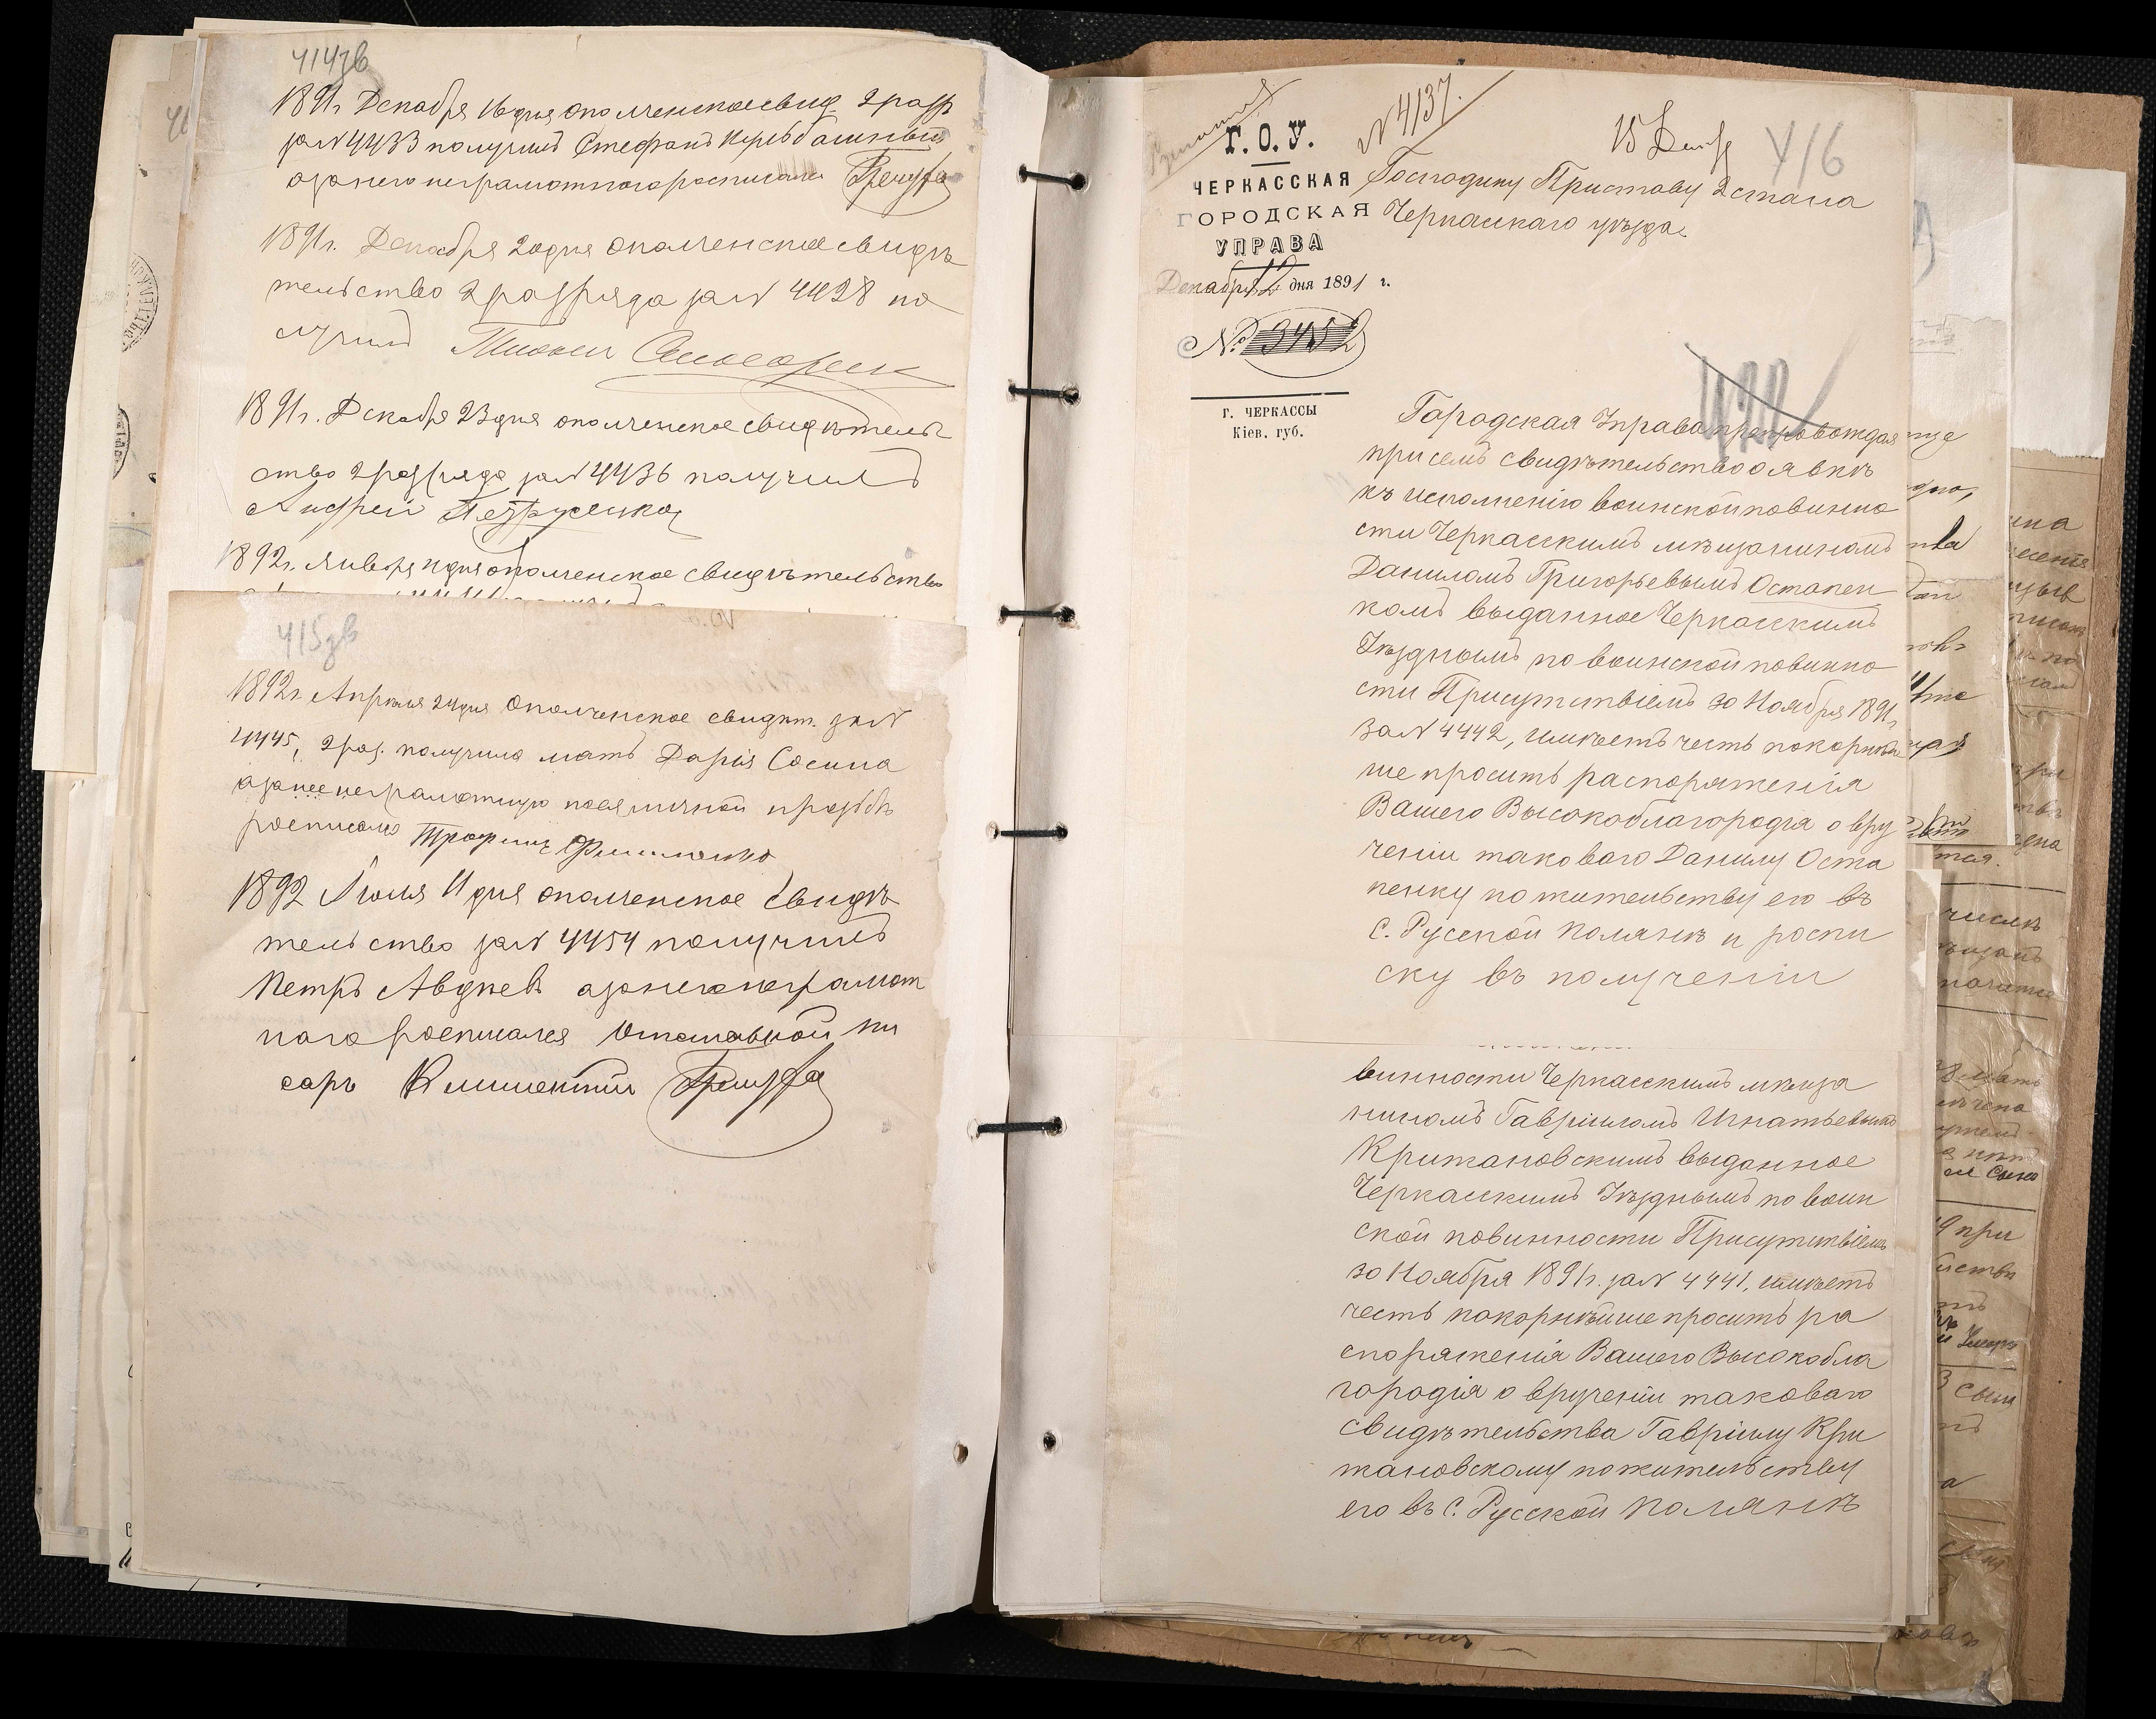 414зв
1891г Декабря 16 дня ополченское свид 2 разр
за N 4433 получилъ Стефанъ
а за него неграмотнаго росписался
1891г. Декабря 20 дня ополченское свидѣ
тельство 2 разряда за N 4428 по
лучилъ
1891г. Декабря 23 дня ополченское свидѣтель
ство 2 разряда за N 4436 получилъ
Андрей
1892г. Января дня ополченское свидѣтельство
415зв
1892г. Апрѣля 24 дня Ополченское свидѣт. за N
4445, 2 раз. получила мать Дарія Сосина
а за нее неграмотную по ея личной прозьбѣ
росписался Трофимъ
1892 Іюля 11 дня ополченское свидѣ
тельство за N 4454 получилъ
Петръ Авдѣевъ а за него неграмот
наго росписался Отставной пи
сарь
N 4137.
15 Дек
416
Г. О. У.
ЧЕРКАССКАЯ
ГОРОДСКАЯ
УПРАВА
Декабря 12 дня 1891 г.
№ 3452
Г. ЧЕРКАССЫ
Кіев. губ.
Господину Приставу 2 стана
Черкасскаго уѣзда.
Городская Управа препровождая
при семъ свидѣтельство о явкѣ
къ исполненію воинской повинно
сти Черкасскимъ мѣщаниномъ
Даниломъ Григорьевымъ Остапен
комъ выданное Черкасскимъ
Уѣзднымъ по воинской повинно
сти Присутствіемъ 30 Ноября 1891г
за N 4442, имѣетъ честь покорнѣй
ше просить распоряженія
Вашего Высокоблагородія о вру
ченіи таковаго Данилу Оста
пенку по жительству его въ
с. Русской Полянѣ и роспи
ску въ полученіи
винности Черкасскимъ мѣща
ниномъ Гавріиломъ Игнатьевымъ
Крижановскимъ выданное
Черкасскимъ Уѣзднымъ по воин
ской повинности Присутствіемъ
30 Ноября 1891г. за N 4441, имѣетъ
честь покорнѣйше просить ра
споряженія Вашего Высокобла
городія о врученіи таковаго
свидѣтельства Гавріилу Кри
жановскому по жительству
его въ с. Русской Полянѣ